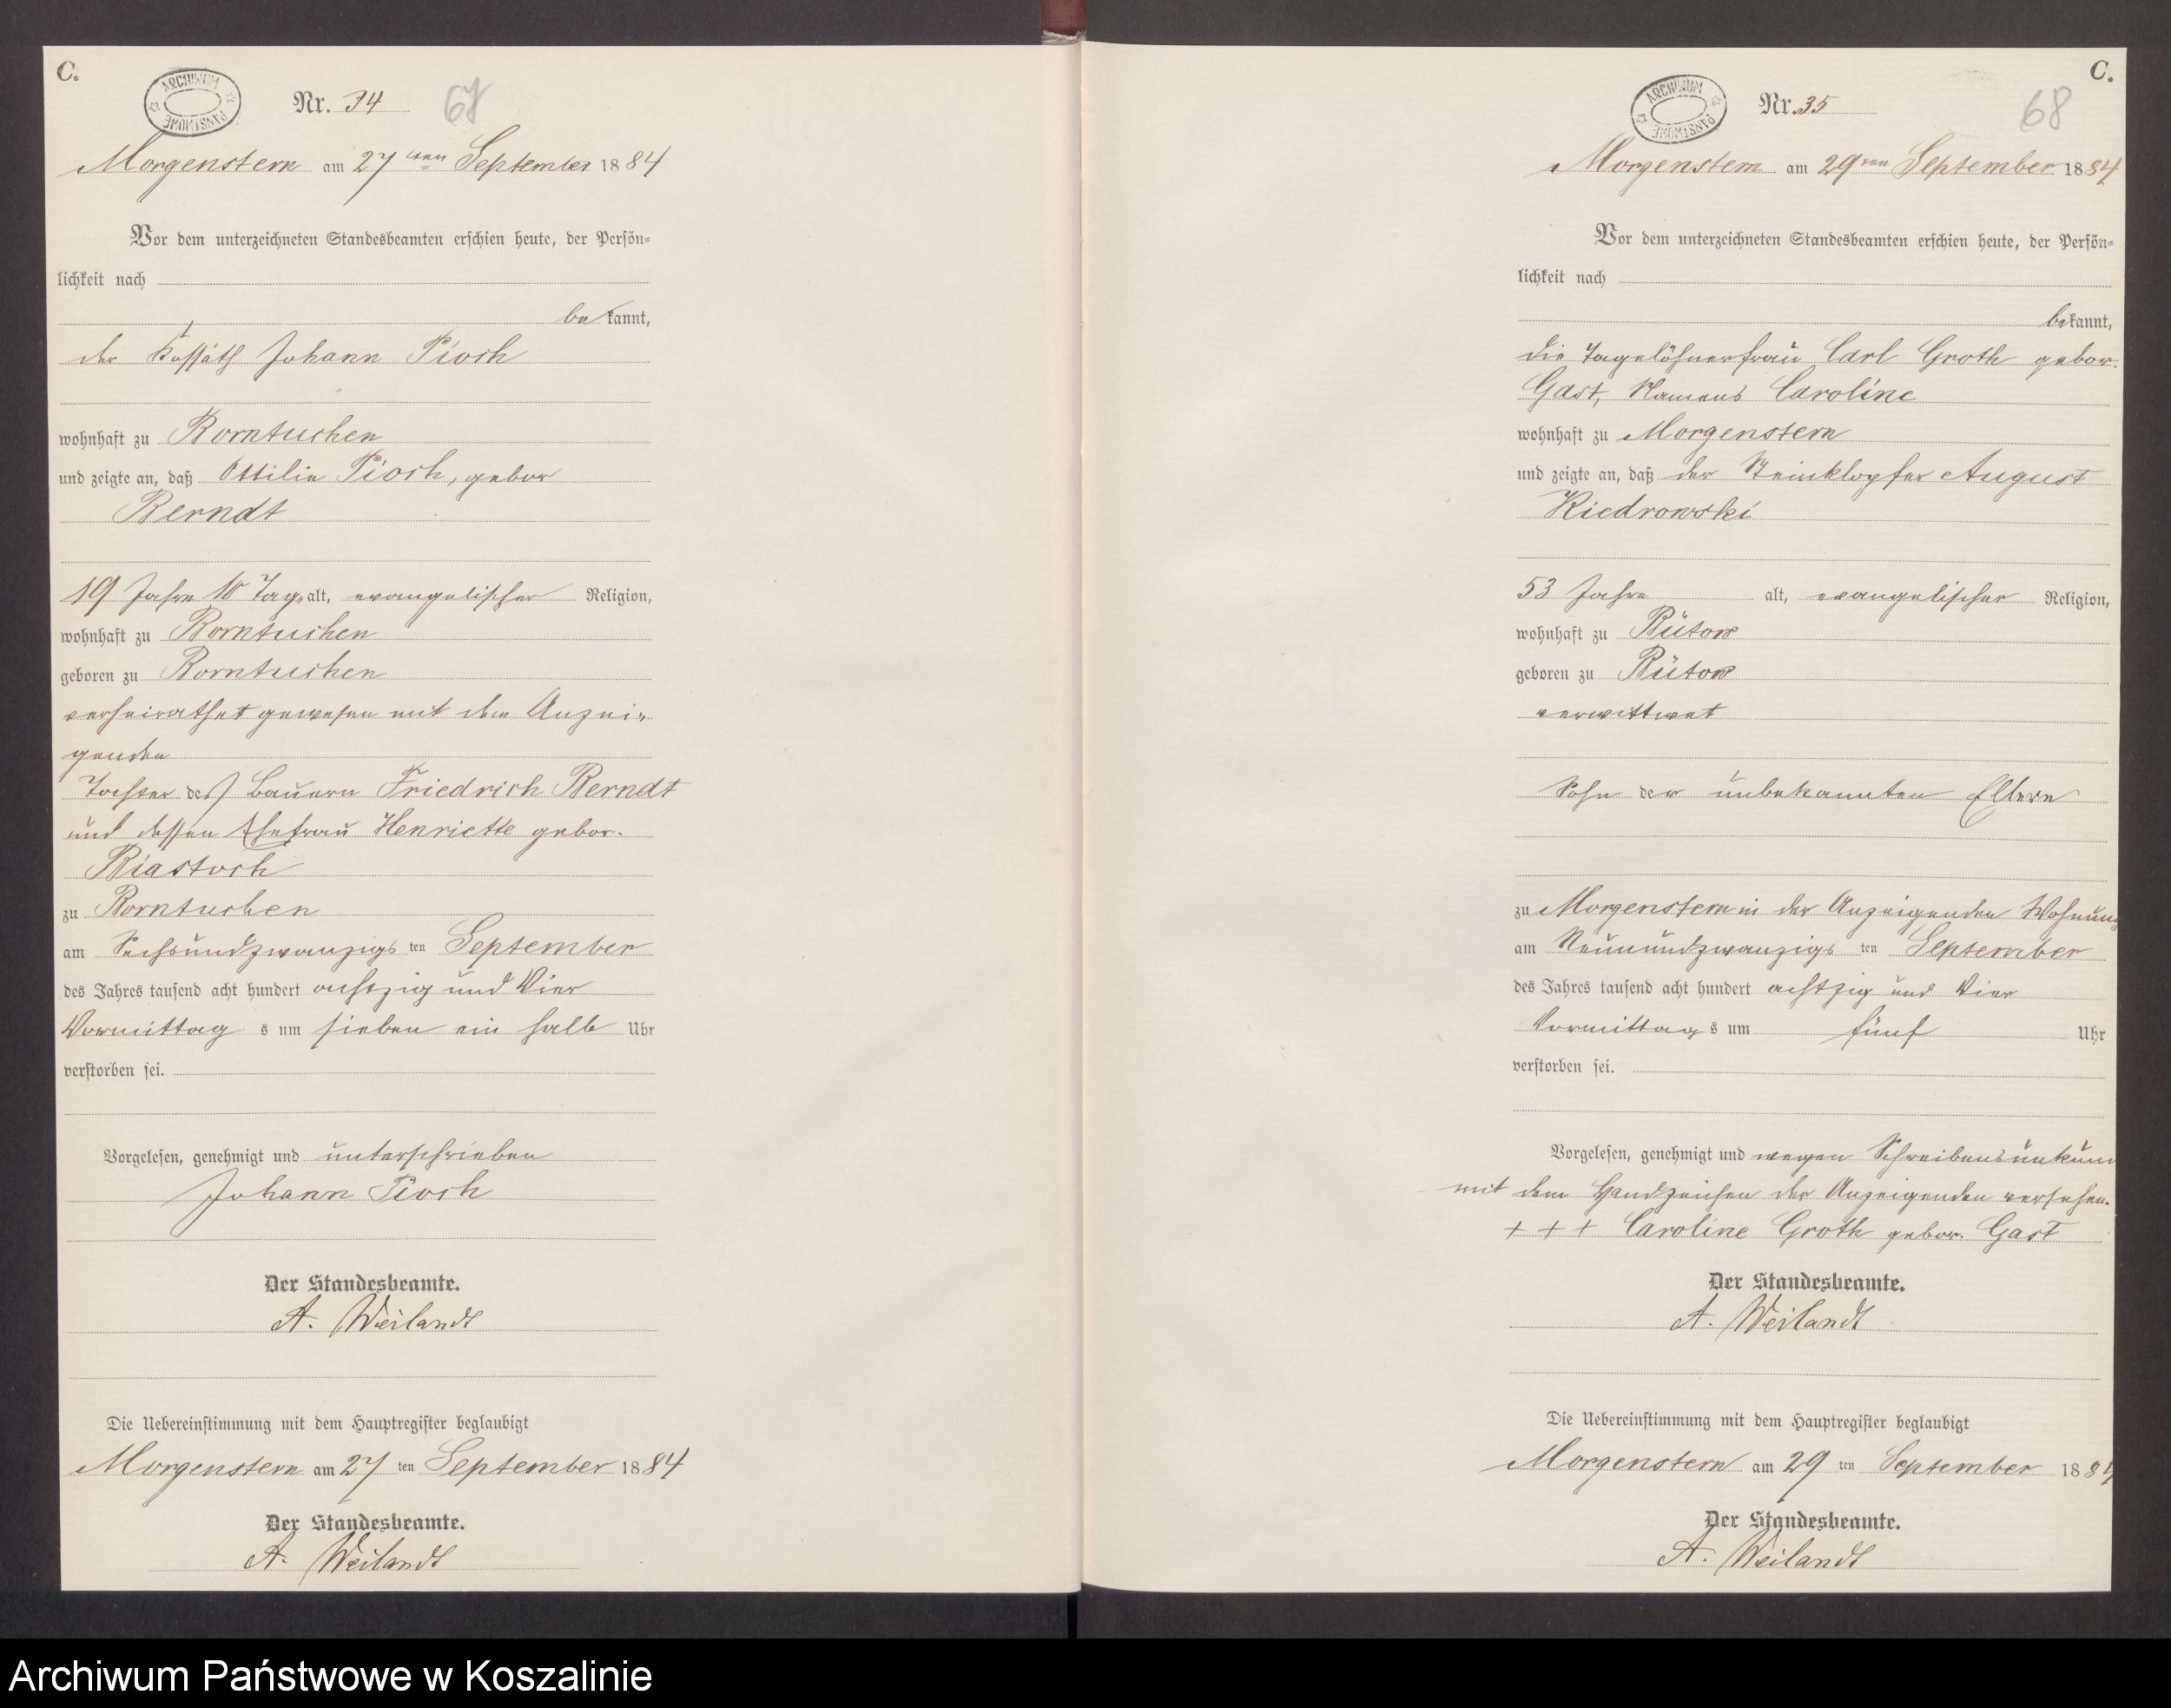 C.
ARCHIWUM PAŃSTWOWE
Nr. 34
67
Morgenstern am 27ten September 1884
Vor dem unterzeichneten Standesbeamten erschien heute, der Persön-
lichkeit nach
bekannt,
der Kossäth Johann Pioch
wohnhaft zu Borntuchen
und zeigte an, daß Ottilie Pioch, gebor
Berndt
19 Jahre 10 Tage alt, evangelischer Religion,
wohnhaft zu Borntuchen
geboren zu Borntuchen
verheirathet gewesen mit dem Anzei-
genden
Tochter des Bauern Friedrich Berndt
und dessen Ehefrau Henriette gebor.
Biastoch
zu Borntuchen
am Sechsundzwanzigsten September
des Jahres tausend acht hundert achtzig und Vier
Vormittags um sieben ein halb Uhr
verstorben sei.
Vorgelesen, genehmigt und unterschrieben
Johann Pioch
Der Standesbeamte.
A. Weilandt
Die Uebereinstimmung mit dem Hauptregister beglaubigt
Morgenstern am 27ten September 1884
Der Standesbeamte.
A. Weilandt
C.
ARCHIWUM PAŃSTWOWE
Nr. 35
68
Morgenstern am 29ten September 1884
Vor dem unterzeichneten Standesbeamten erschien heute, der Persön-
lichkeit nach
bekannt,
die Tagelöhnerfrau Carl Groth gebor.
Gast, Namens Caroline
wohnhaft zu Morgenstern
und zeigte an, daß der Steinklopfer August
Kiedrowski
53 Jahre alt, evangelischer Religion,
wohnhaft zu Bütow
geboren zu Bütow
verwittwet
Sohn der unbekannten Eltern
zu Morgenstern in der Anzeigenden Wohnung
am Neunundzwanzigsten September
des Jahres tausend acht hundert achtzig und Vier
Vormittags um fünf Uhr
verstorben sei.
Vorgelesen, genehmigt und wegen Schreibensunkun
mit dem Handzeichen der Anzeigenden versehen.
+ + + Caroline Groth gebor. Gast
Der Standesbeamte.
A. Weilandt
Die Uebereinstimmung mit dem Hauptregister beglaubigt
Morgenstern am 29ten September 1884
Der Standesbeamte.
A. Weilandt
Archiwum Państwowe w Koszalinie